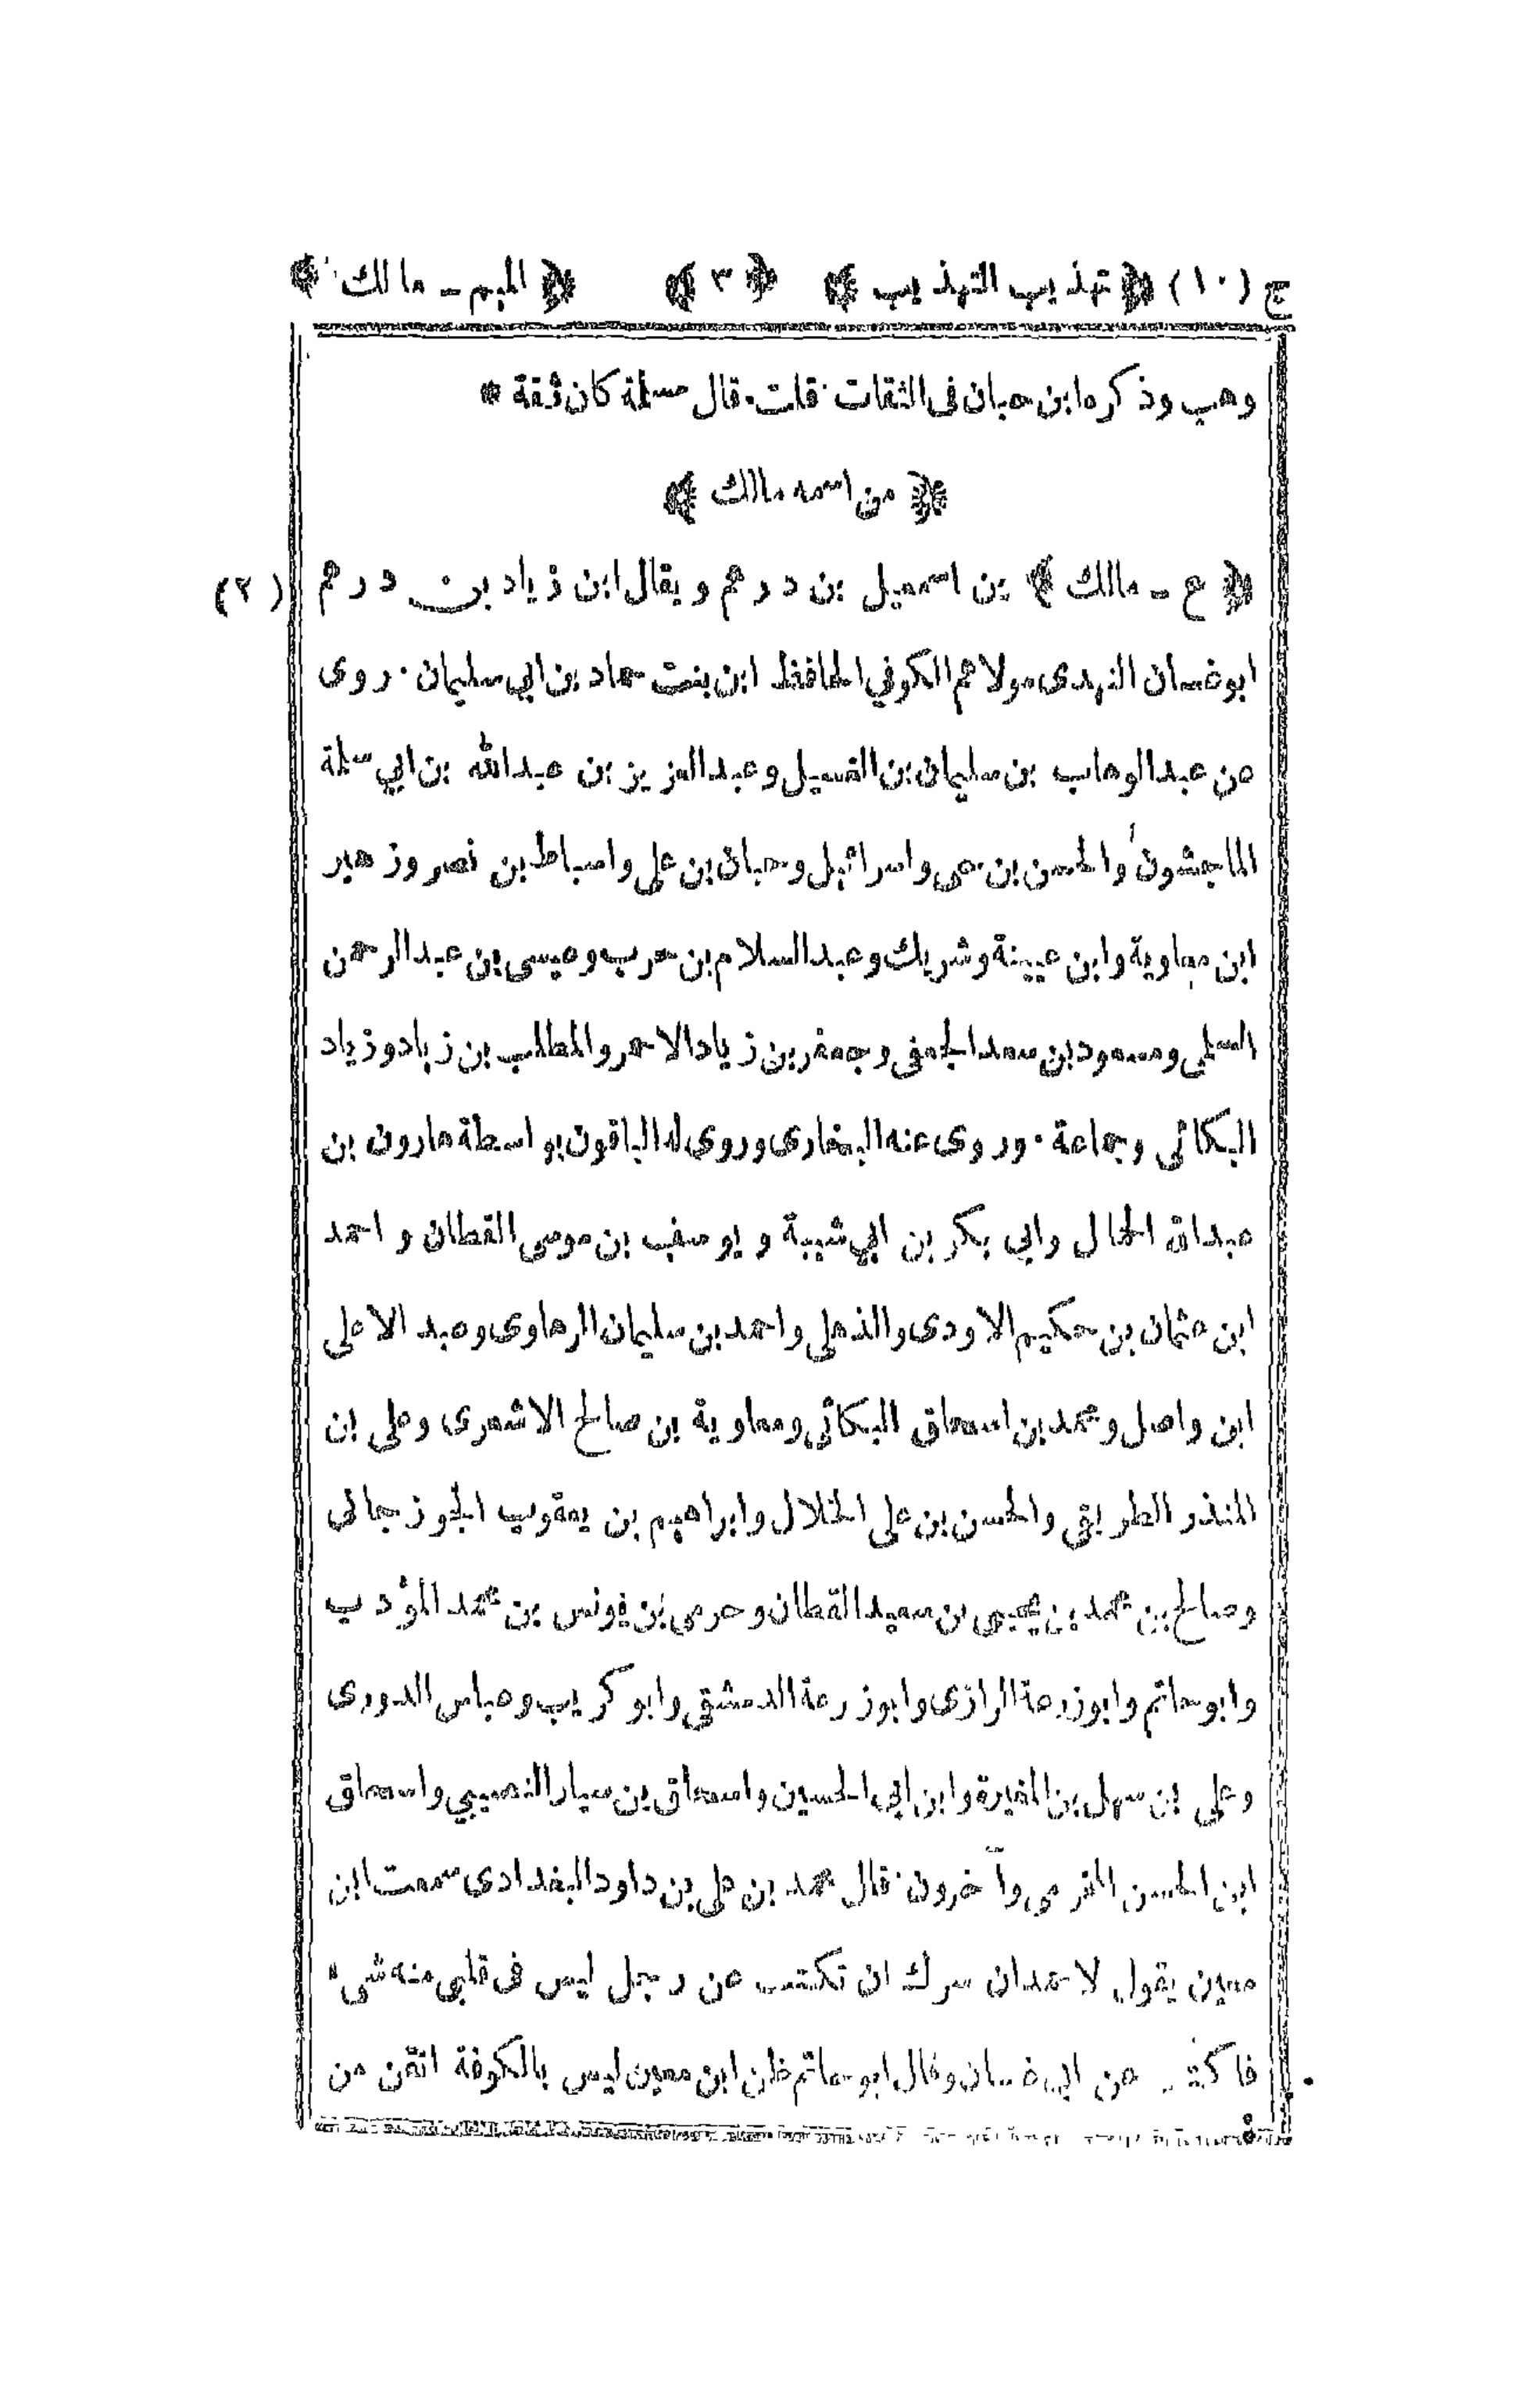 ج (١٠) ﴿ تهذيب التهذيب ﴾ ﴿ ٣ ﴾ ﴿ الميم ـ مالك ﴾
وهب وذكره ابن حبان فى الثقات · قلت · قال مسلمة كان ثقة *
﴿ من اسمه مالك ﴾
﴿ ع ـ مالك ﴾ بن اسمعيل بن درهم ويقال ابن زياد بن درهم (٢)
ابو غسان النهدى مولاهم الكوفي الحافظ ابن بنت حماد بن ابي سليمان · روى
عن عبد الوهاب بن سليمان بن الغسيل وعبد العزيز بن عبد الله بن ابي سلمة
الماجشون والحسن بن حى واسرائيل وحبان بن علي واسباط بن نصر وزهير
ابن معاوية وابن عيينة وشريك وعبد السلام بن حرب وعيسى بن عبد الرحمن
السلمي ومسعود بن سعد الجعفي وجعفر بن زياد الاحمر والمطلب بن زياد وزياد
البكائي وجماعة · وروى عنه البخارى وروى له الباقون بواسطة هارون بن
عبد الله الحمال وابي بكر بن ابي شيبة ويوسف بن موسى القطان واحمد
ابن عثمان بن حكيم الاودى والذهلي واحمد بن سليمان الرهاوى وعبد الاعلى
ابن واصل ومحمد بن اسحاق البكائي ومعاوية بن صالح الاشعرى وعلي بن
المنذر الطريقي والحسن بن على الخلال وابراهيم بن يعقوب الجوزجانى
وصالح بن محمد بن يحيى بن سعيد القطان وحرمي بن يونس بن محمد المؤدب
وابو حاتم وابو زرعة الرازى وابو زرعة الدمشقي وابو كريب وعباس الدورى
وعلي بن سهل بن المغيرة وابن ابي الحسين واسحاق بن سيار النصيبي واسحاق
ابن الحسن الحربي وآخرون · قال محمد بن علي بن داود البغدادى سمعت ابن
معين يقول لاحمد ان سرك ان تكتب عن رجل ليس فى قلبي منه شيء
فاكتب عن ابي غسان وقال ابو حاتم عن ابن معين ليس بالكوفة اتقن من